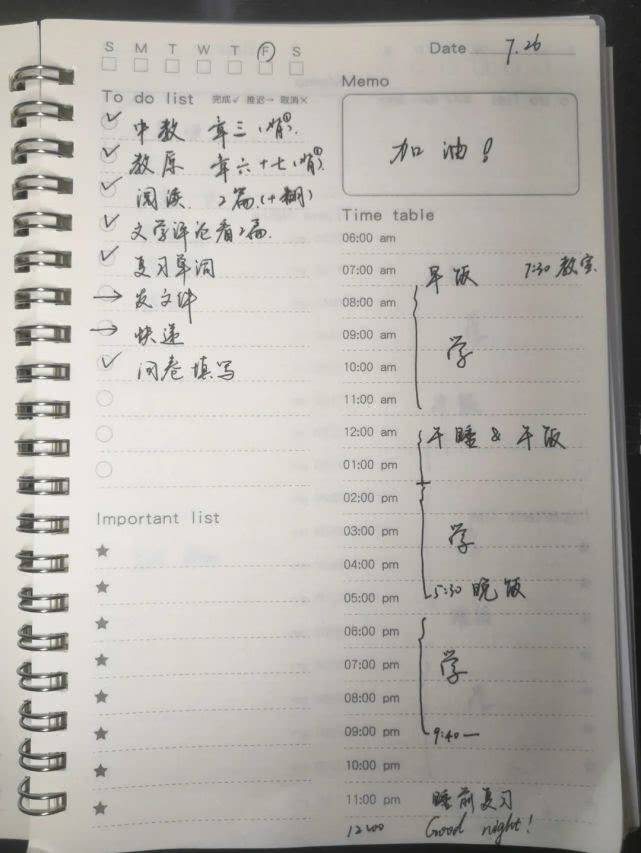 S M T W T F S
Date 7.26
To do list 完成✓ 推迟→ 取消×
✓ 中数 章三(背①).
✓ 教原 章六+七(背①).
✓ 阅读. 2篇(+翻)
✓ 文学评论看2篇.
✓ 复习单词
→ 发文件
→ 快递
✓ 问卷填写
Important list
Memo
加油!
Time table
06:00 am
07:00 am 早饭 7:30 教室
08:00 am
09:00 am 学
10:00 am
11:00 am
12:00 am 午睡 & 午饭
01:00 pm
02:00 pm
03:00 pm 学
04:00 pm
05:00 pm 5:30 晚饭
06:00 pm
07:00 pm 学
08:00 pm
09:00 pm 9:40—
10:00 pm
11:00 pm 睡前复习
12:00 Good night!